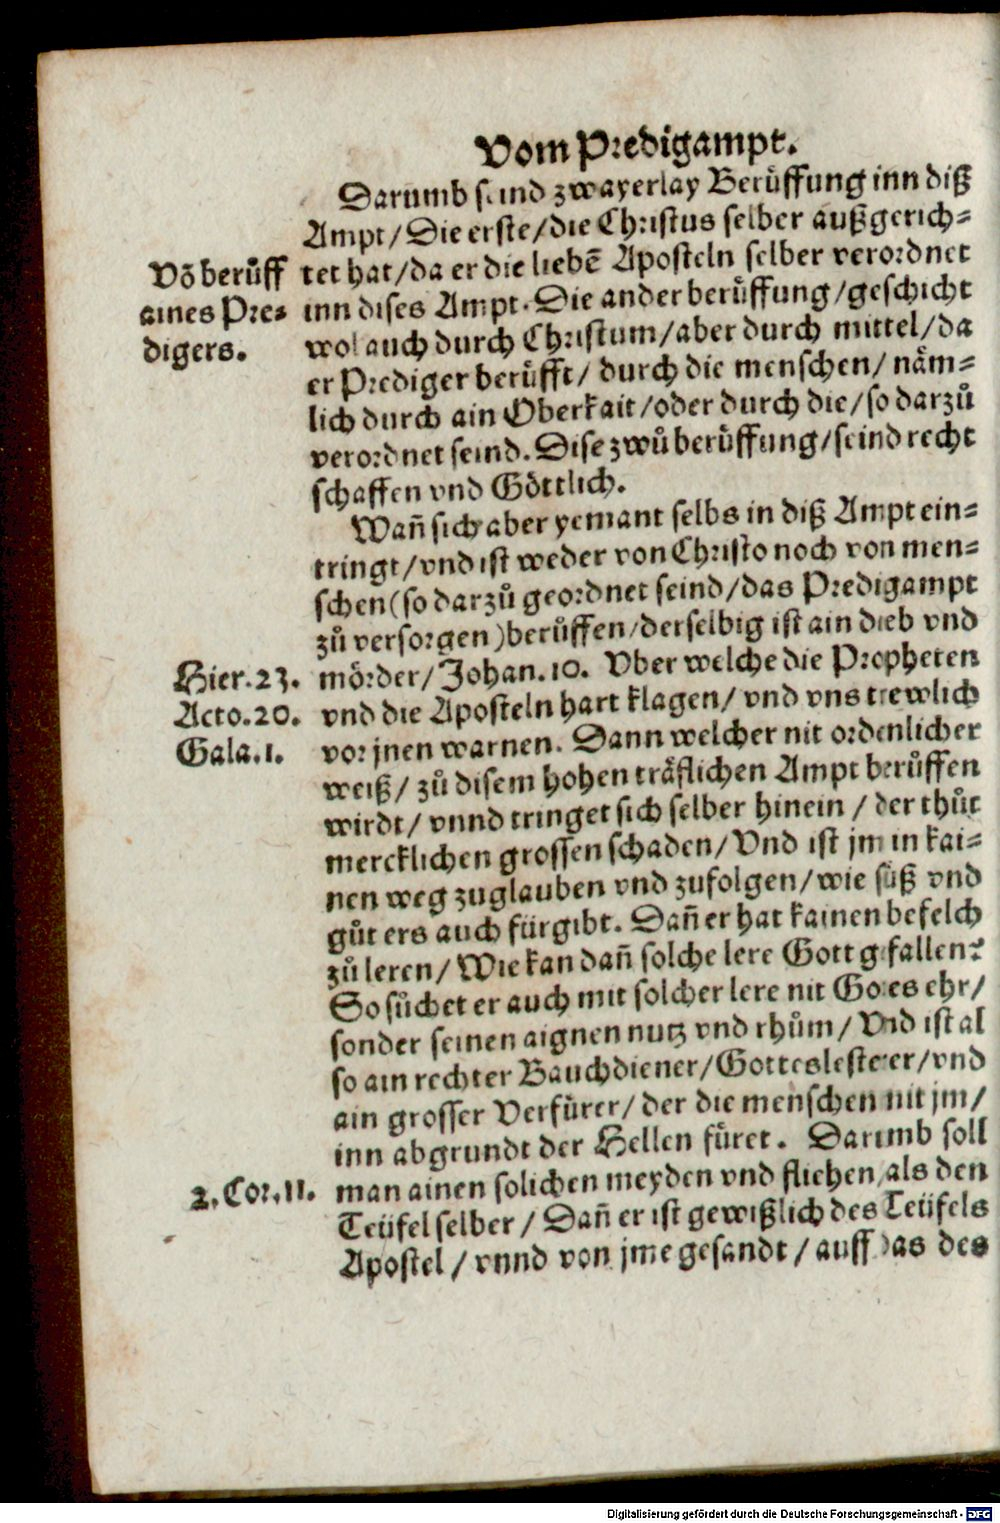 Vom Predigampt.
Darumb seind zwayerlay Berůffung inn diß
Ampt/Die erste/die Christus selber außgerich-
tet hat/da er die liebẽ Aposteln selber verordnet
inn dises Ampt. Die ander berůffung/geschicht
wol auch durch Christum/aber durch mittel/da
er Prediger berůfft/ durch die menschen/ näm-
lich durch ain Oberkait/oder durch die/so darzů
verordnet seind. Dise zwů berůffung/seind recht
schaffen vnd Göttlich.
Võ berůff
aines Pre-
digers.
Wañ sich aber yemant selbs in diß Ampt ein-
tringt/vnd ist weder von Christo noch von men-
schen(so darzů geordnet seind/das Predigampt
zů versorgen)berůffen/derselbig ist ain dieb vnd
mörder/Johan.10. Vber welche die Propheten
vnd die Aposteln hart klagen/ vnd vns trewlich
vor jnen warnen. Dann welcher nit ordenlicher
weiß/ zů disem hohen träflichen Ampt berůffen
wirdt/ vnnd tringet sich selber hinein / der thůt
mercklichen grossen schaden/Vnd ist jm in kai-
nen weg zuglauben vnd zufolgen/wie süß vnd
gůt ers auch fürgibt. Dañ er hat kainen befelch
zů leren/ Wie kan dañ solche lere Gott gefallen?
So sůchet er auch mit solcher lere nit Gotes ehr/
sonder seinen aignen nutz vnd rhům/ Vnd ist al
so ain rechter Bauchdiener/Gotteslesterer/vnd
ain grosser Verfürer/ der die menschen mit jm/
inn abgrundt der Hellen füret. Darumb soll
man ainen solichen meyden vnd fliehen/als den
Teüfel selber / Dañ er ist gewißlich des Teüfels
Apostel / vnnd von jme gesandt / auff das des
Hier.23.
Acto.20.
Gala.1.
2.Cor.11.
Digitalisierung gefördert durch die Deutsche Forschungsgemeinschaft - DFG